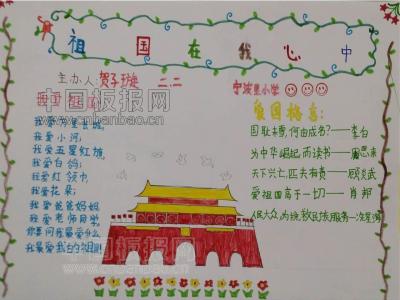 祖国在我心中
主办人:贺子珽 二.二
宁波里小学
中国板报网
www.cnbanbao.cn
我爱祖国
我爱万里长城,
我爱小河;
我爱五星红旗,
我爱白鸽;
我爱红领巾,
我爱花朵;
我爱爸爸妈妈
我爱老师同学
你要问我最爱什么
我最爱我的祖国!
爱国格言:
国耻未雪,何由成名?——李白
为中华崛起而读书——周恩来
天下兴亡,匹夫有责——顾炎武
爱祖国高于一切——肖邦
中国板报网
www.cnbanbao.cn